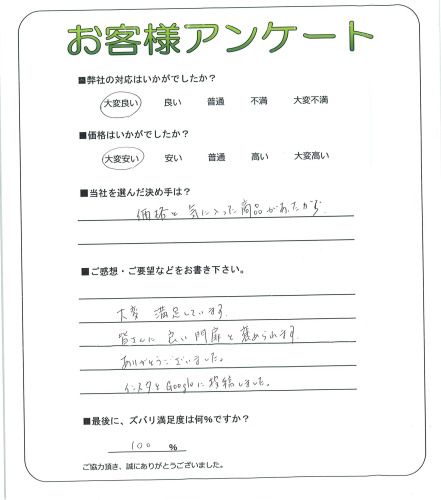 お客様アンケート
■弊社の対応はいかがでしたか？
大変良い 良い 普通 不満 大変不満
■価格はいかがでしたか？
大変安い 安い 普通 高い 大変高い
■当社を選んだ決め手は？
価格と気に入った商品があたから
■ご感想・ご要望などをお書き下さい。
大変 満足しています
皆さんに 良い 門扉と 褒められます
ありがとうございました。
インスタとGoogleに投稿しました。
■最後に、ズバリ満足度は何%ですか？
100 %
ご協力頂き、誠にありがとうございました。